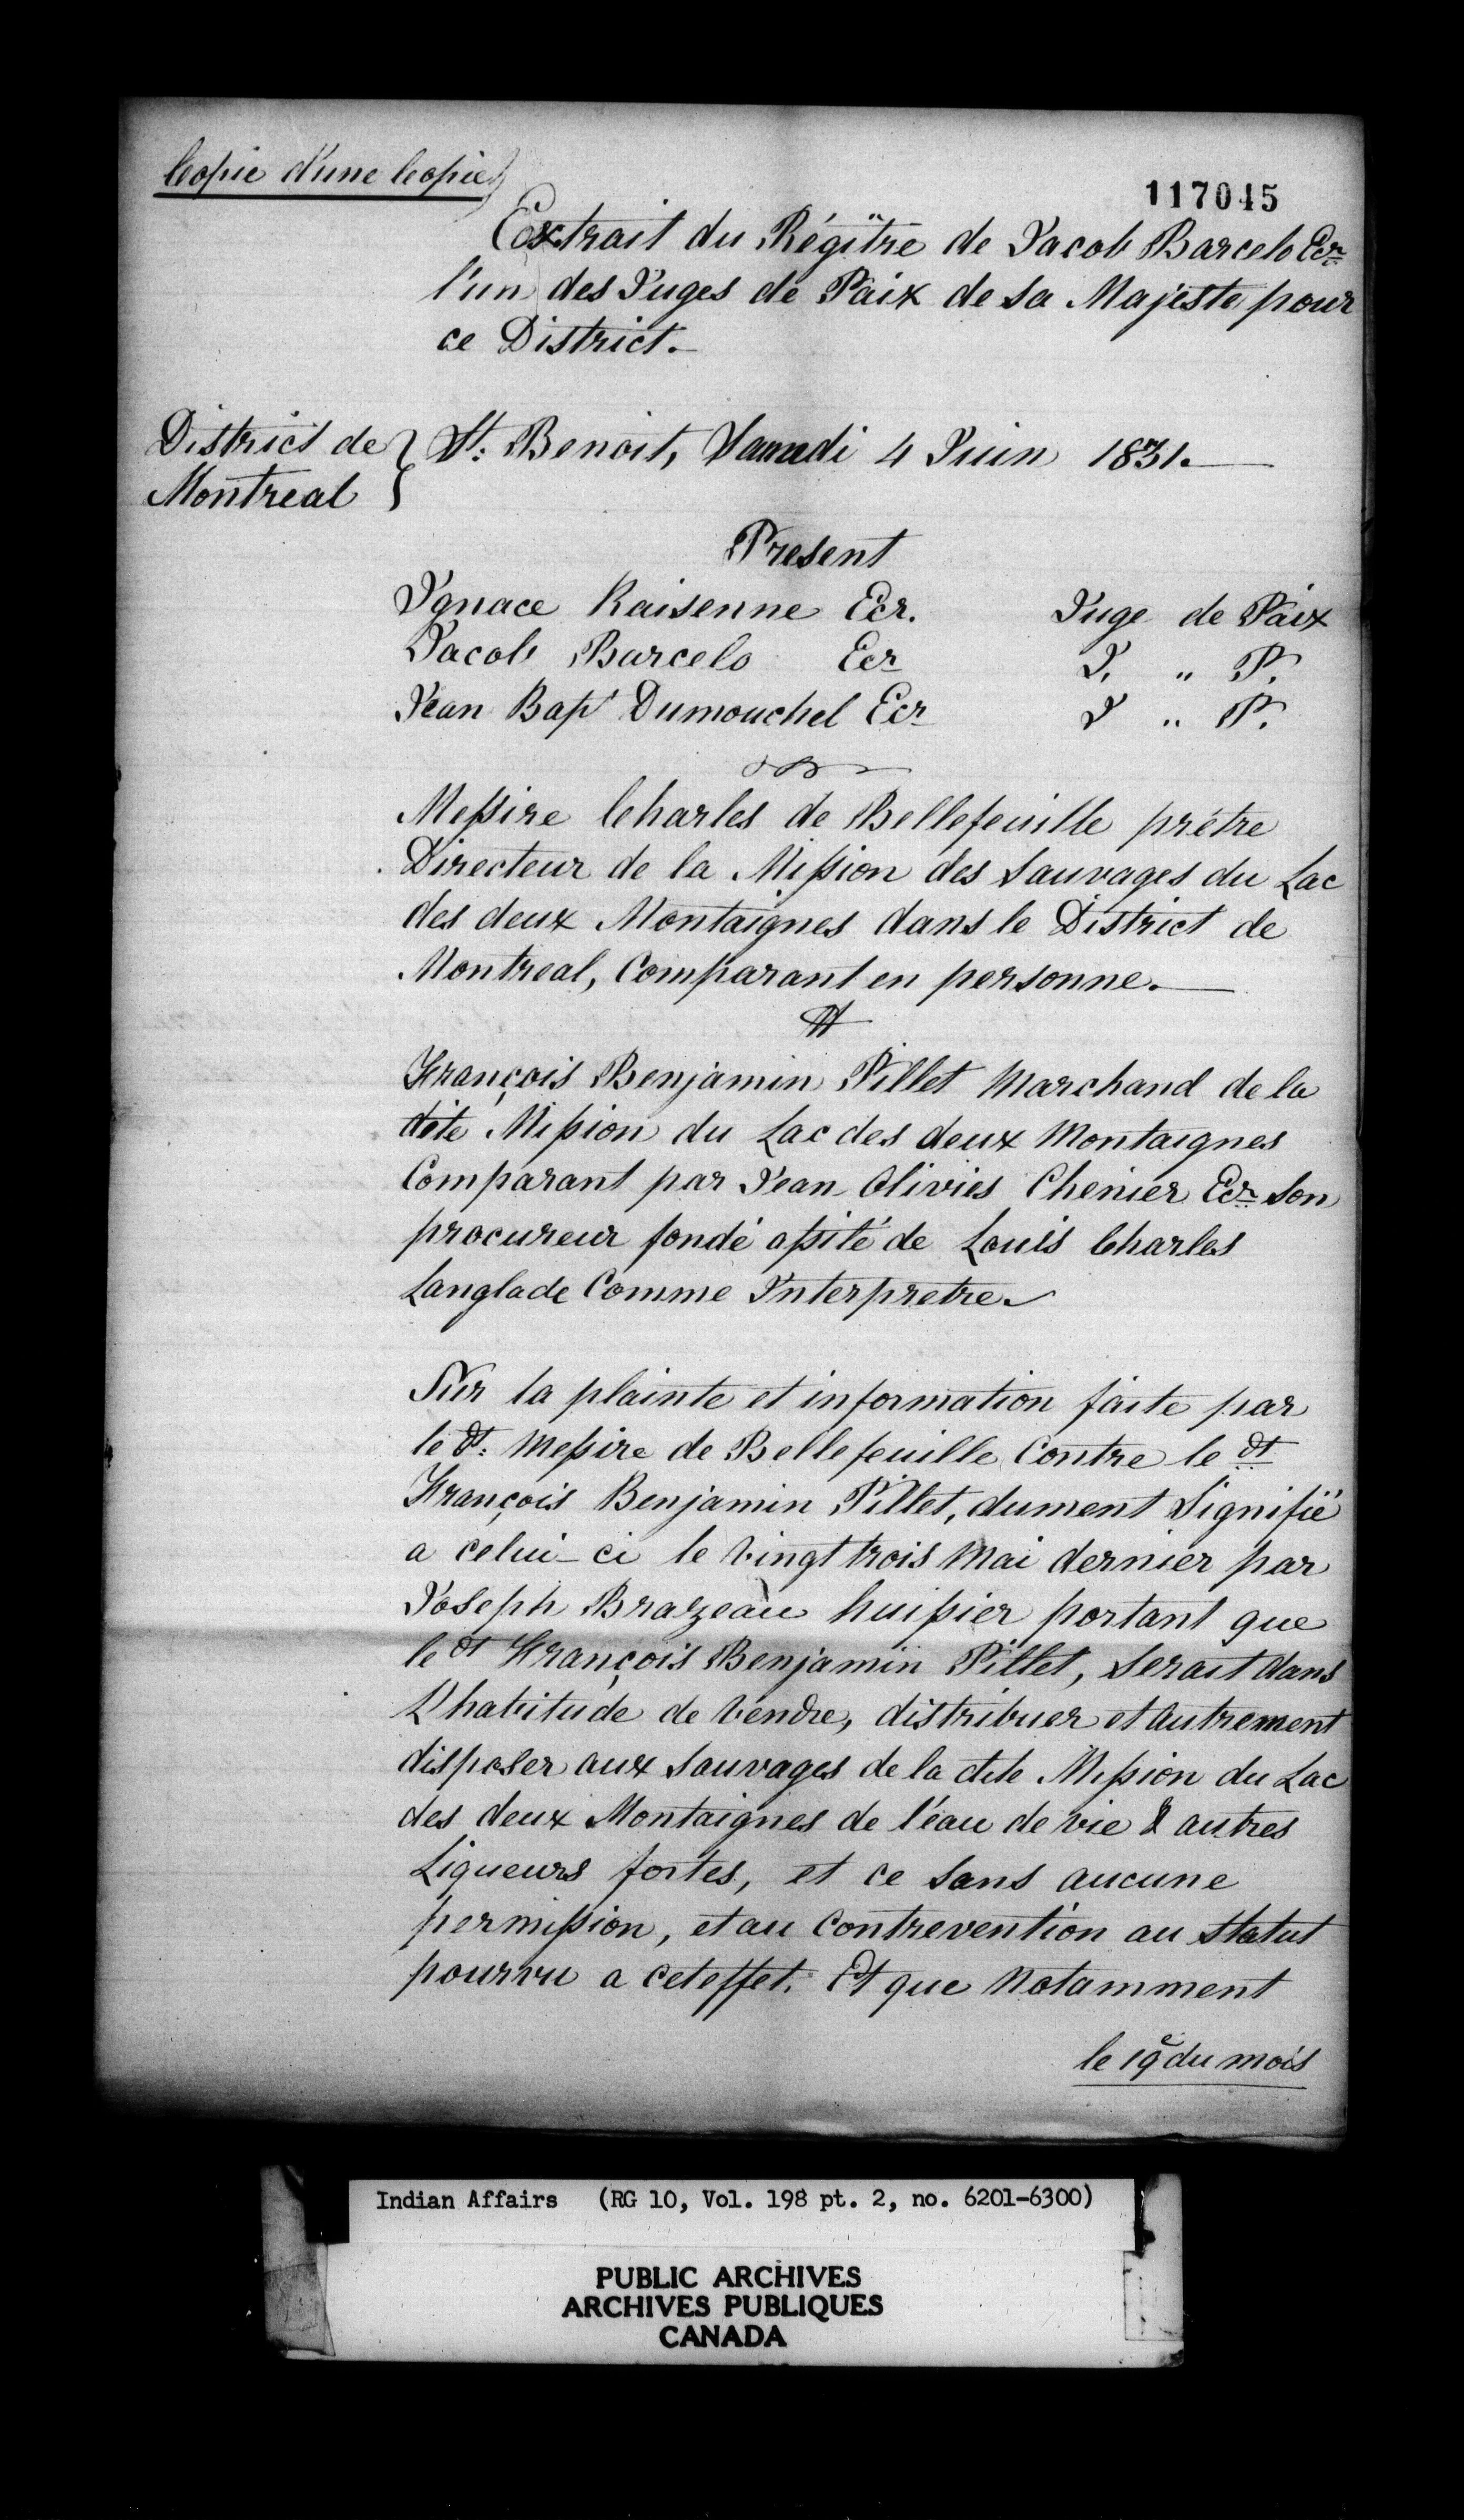 Copie d'une Copie
117045
Extrait du Régitre de Jacob Barcelo Ecr
l'un des Juges de Paix de Sa Majeste pour
ce District.
District de
Montreal
St: Benoit, Samedi 4 Juin 1831.
Present
Ignace Raisenne Ecr. Juge de Paix
Jacob Barcelo Ecr J. " P.
Jean Bapt Dumouchel Ecr J " P.
Messire Charles de Bellefeuille prétre
Directeur de la Mission des Sauvages du Lac
des deux Montaignes dans le District de
Montreal, Comparant en personne.
François Benjamin Pillet Marchand de la
dite Mission du Lac des deux Montaignes
Comparant par Jean Olivies Chenier Ecr Son
procureur fondé assité de Louis Charles
Langlade Comme Interpretre
Sur la plainte et information faite par
le dt: Messire de Bellefeuille Contre le dt
François Benjamin Pillet, dument Signifié
a celui-ci le vingt trois Mai dernier par
Joseph Brazeau huissier portant que
le dt François Benjamin Pillet, Serait dans
L'habitude de vendre, distribuer et autrement
disposer aux Sauvages de la dite Mission du Lac
des deux Montaignes de l'éau de vie & autres
Liqueurs fortes, et ce Sans aucune
permission, et au Contrevention au Statut
pourvu a cet effet. Et que Notamment
le 19e du mois
Indian Affairs (RG 10, Vol. 198 pt. 2, no. 6201-6300)
PUBLIC ARCHIVES
ARCHIVES PUBLIQUES
CANADA